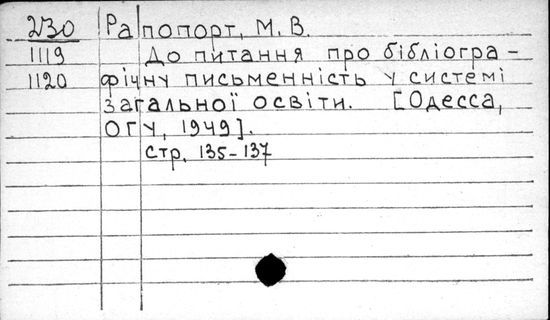 2/30 Рапопорт, М. В.
1119 До питання про бібліогра-
1120 фічну письменність у системі
загальної освіти. [Одесса,
ОГУ, 1949].
Стр. 135-137